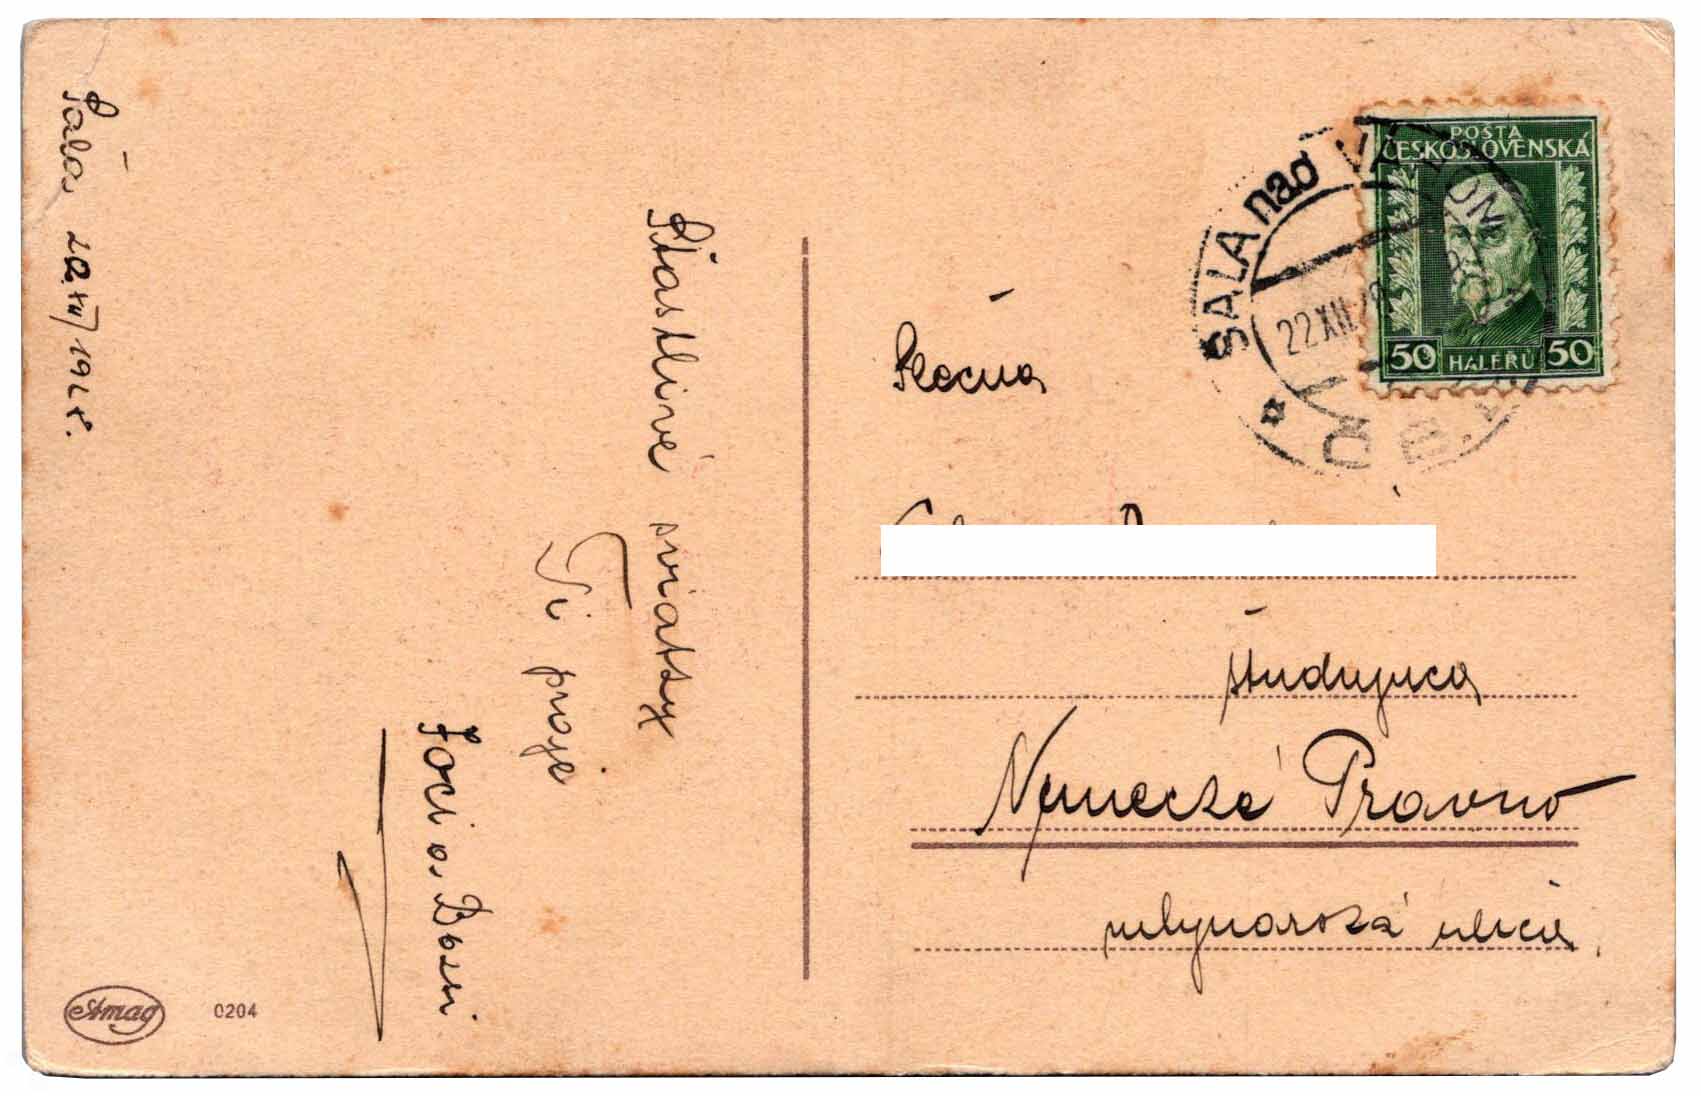 Šaľa 20.XII/1928.
Šťastlivé sviatky
Ti praje
Joci a Bossi
Amag
0204
POŠTA
ČESKOSLOVENSKÁ
50 HALÉŘŮ 50
ŠALA nad VÁHOM
22.XII.28
Slečna
študujuca
Nemecké Pravno
mlynarská ulica.